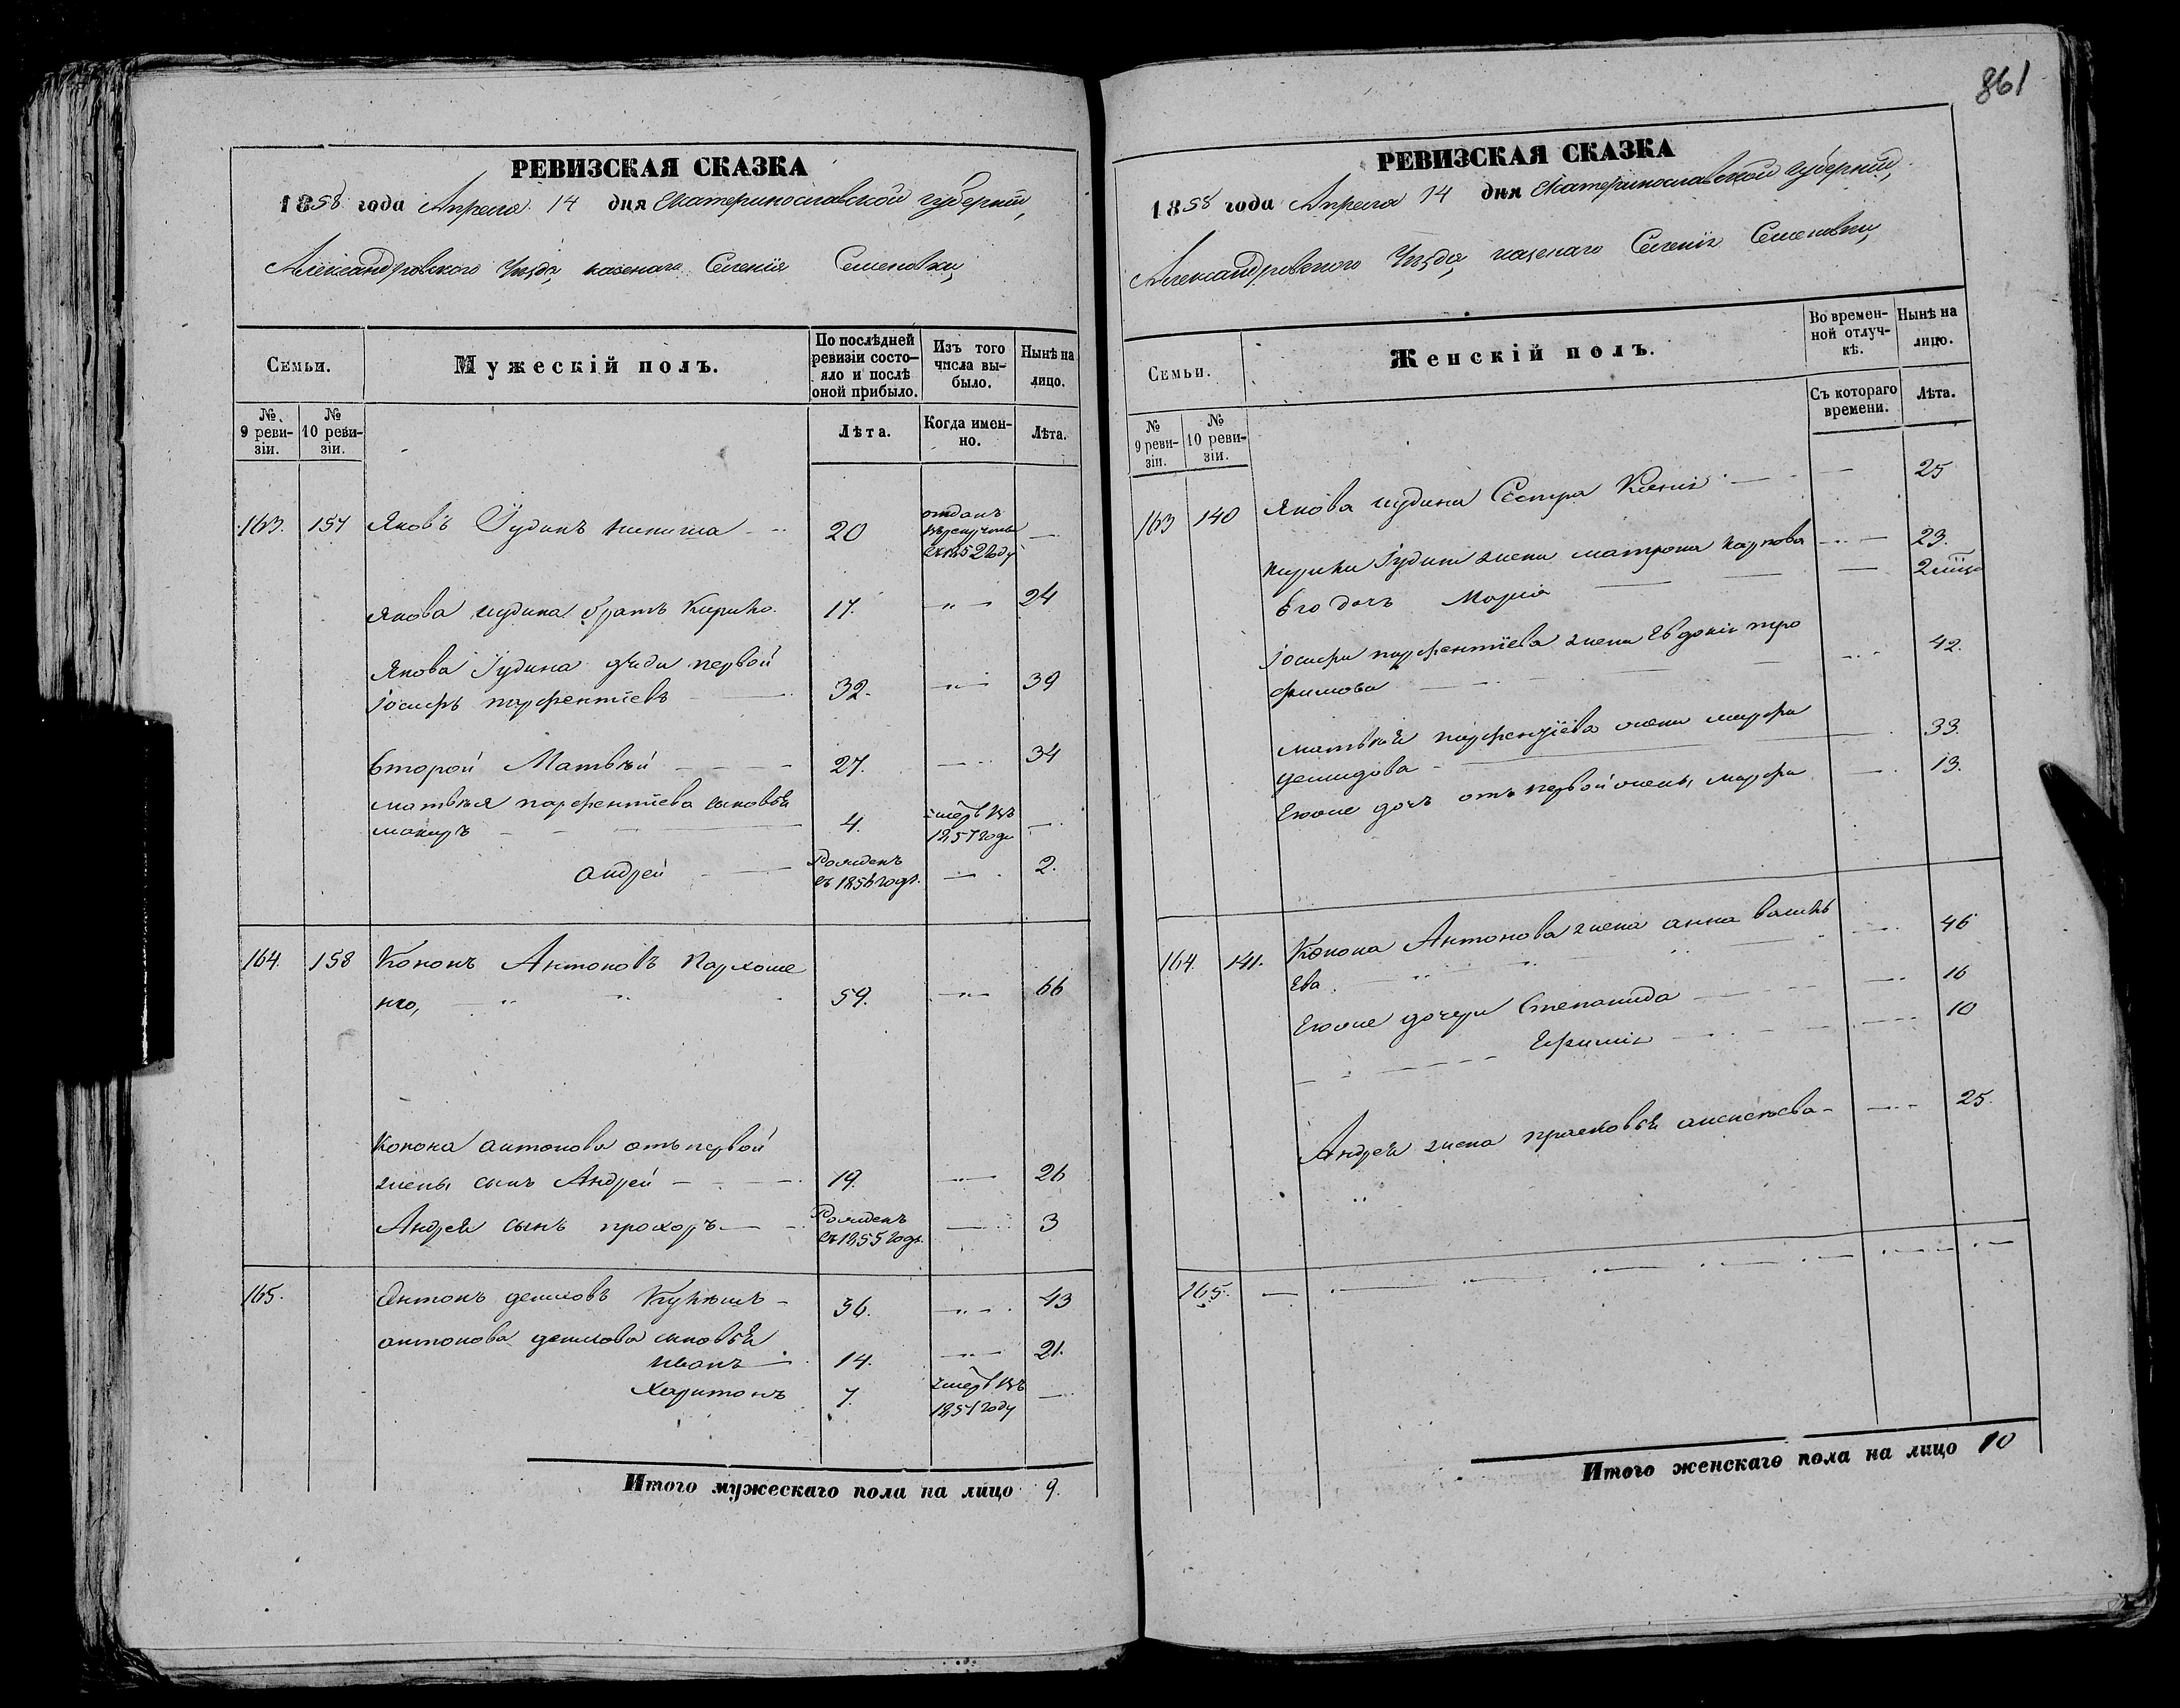 861
РЕВИЗСКАЯ СКАЗКА
1858 года Апреля 14 дня Екатеринославской губерніи,
Александровского Уѣзда, казенаго Селенія Семеновки,
Семьи.
Мужескій полъ.
По послѣдней ревизіи состояло и послѣ оной прибыло.
Изъ того числа выбыло.
Нынѣ на лицо.
№ 9 ревизіи.
№ 10 ревизіи.
Лѣта.
Когда именно.
Лѣта.
163. 157 Яковъ Іудинъ 20 отданъ въ рекруты въ 1852 году —
Якова Іудина братъ Кирило. 17. — 24
Якова Іудина дяди первой
Іосифъ парфентіевъ 32. — 39
Второй Матвѣй 27. — 34
матвѣя парфентіева сыновья
макаръ 4. умеръ въ 1857 годе —
андрей Рожденъ въ 1856 годе. — 2.
164. 158 Кононъ Антоновъ Пархоме
нко, 59. — 66
Конона антонова отъ первой
жены сынъ Андрей 19. — 26
Андрея сынъ прохоръ Рожденъ въ 1855 годе. — 3
165. Антонъ демидовъ 36. — 43
антонова демидова сыновья
иванъ 14. — 21.
Харитонъ 7. умеръ въ 1857 году —
Итого мужескаго пола на лицо 9.
РЕВИЗСКАЯ СКАЗКА
1858 года Апреля 14 дня Екатеринославской губерніи,
Александровского Уѣзда, казенаго Селенія Семеновки,
Семьи.
Женскій полъ.
Во временной отлучкѣ.
Нынѣ на лицо.
№ 9 ревизіи.
№ 10 ревизіи.
Съ котораго времени.
Лѣта.
163 140 Якова Іудина Сестра Ксенія — 25
кирила Іудина жена матрона карпова — 23.
Его дочь Марія — 2
Іосифа парфентіева жена Евдокія тро
фимова — 42.
матвѣя парфентіева жена марфа
демидова — 33.
Егоже дочь отъ первой жены, марфа — 13.
164. 141. Конона Антонова жена анна василь
ева — 46
Егоже дочери Степанида — 16
Ефимія — 10
Андрея жена прасковья алексѣева — 25.
165. —
Итого женскаго пола на лицо 10